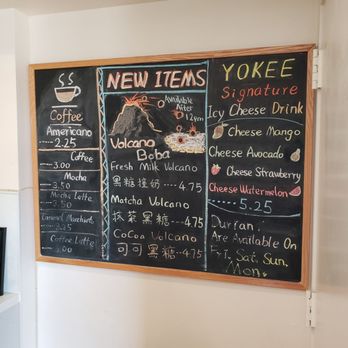 Coffee
Americano
2.25
Coffee
3.00
Mocha
3.50
Mocha Latte
3.50
Caramel Macchiato
Coffee Latte
3.00
NEW ITEMS
Available
After
12pm
Volcano
Boba
Fresh Milk Volcano
黑糖撞奶----4.75
Matcha Volcano
抹茶黑糖----4.75
CoCoa Volcano
可可黑糖--4.75
YOKEE
Signature
Icy Cheese Drink
Cheese Mango
Cheese Avocado
Cheese Strawberry
Cheese Watermelon
5.25
Durian
Are Available On
Fri, Sat, Sun,
Mon,